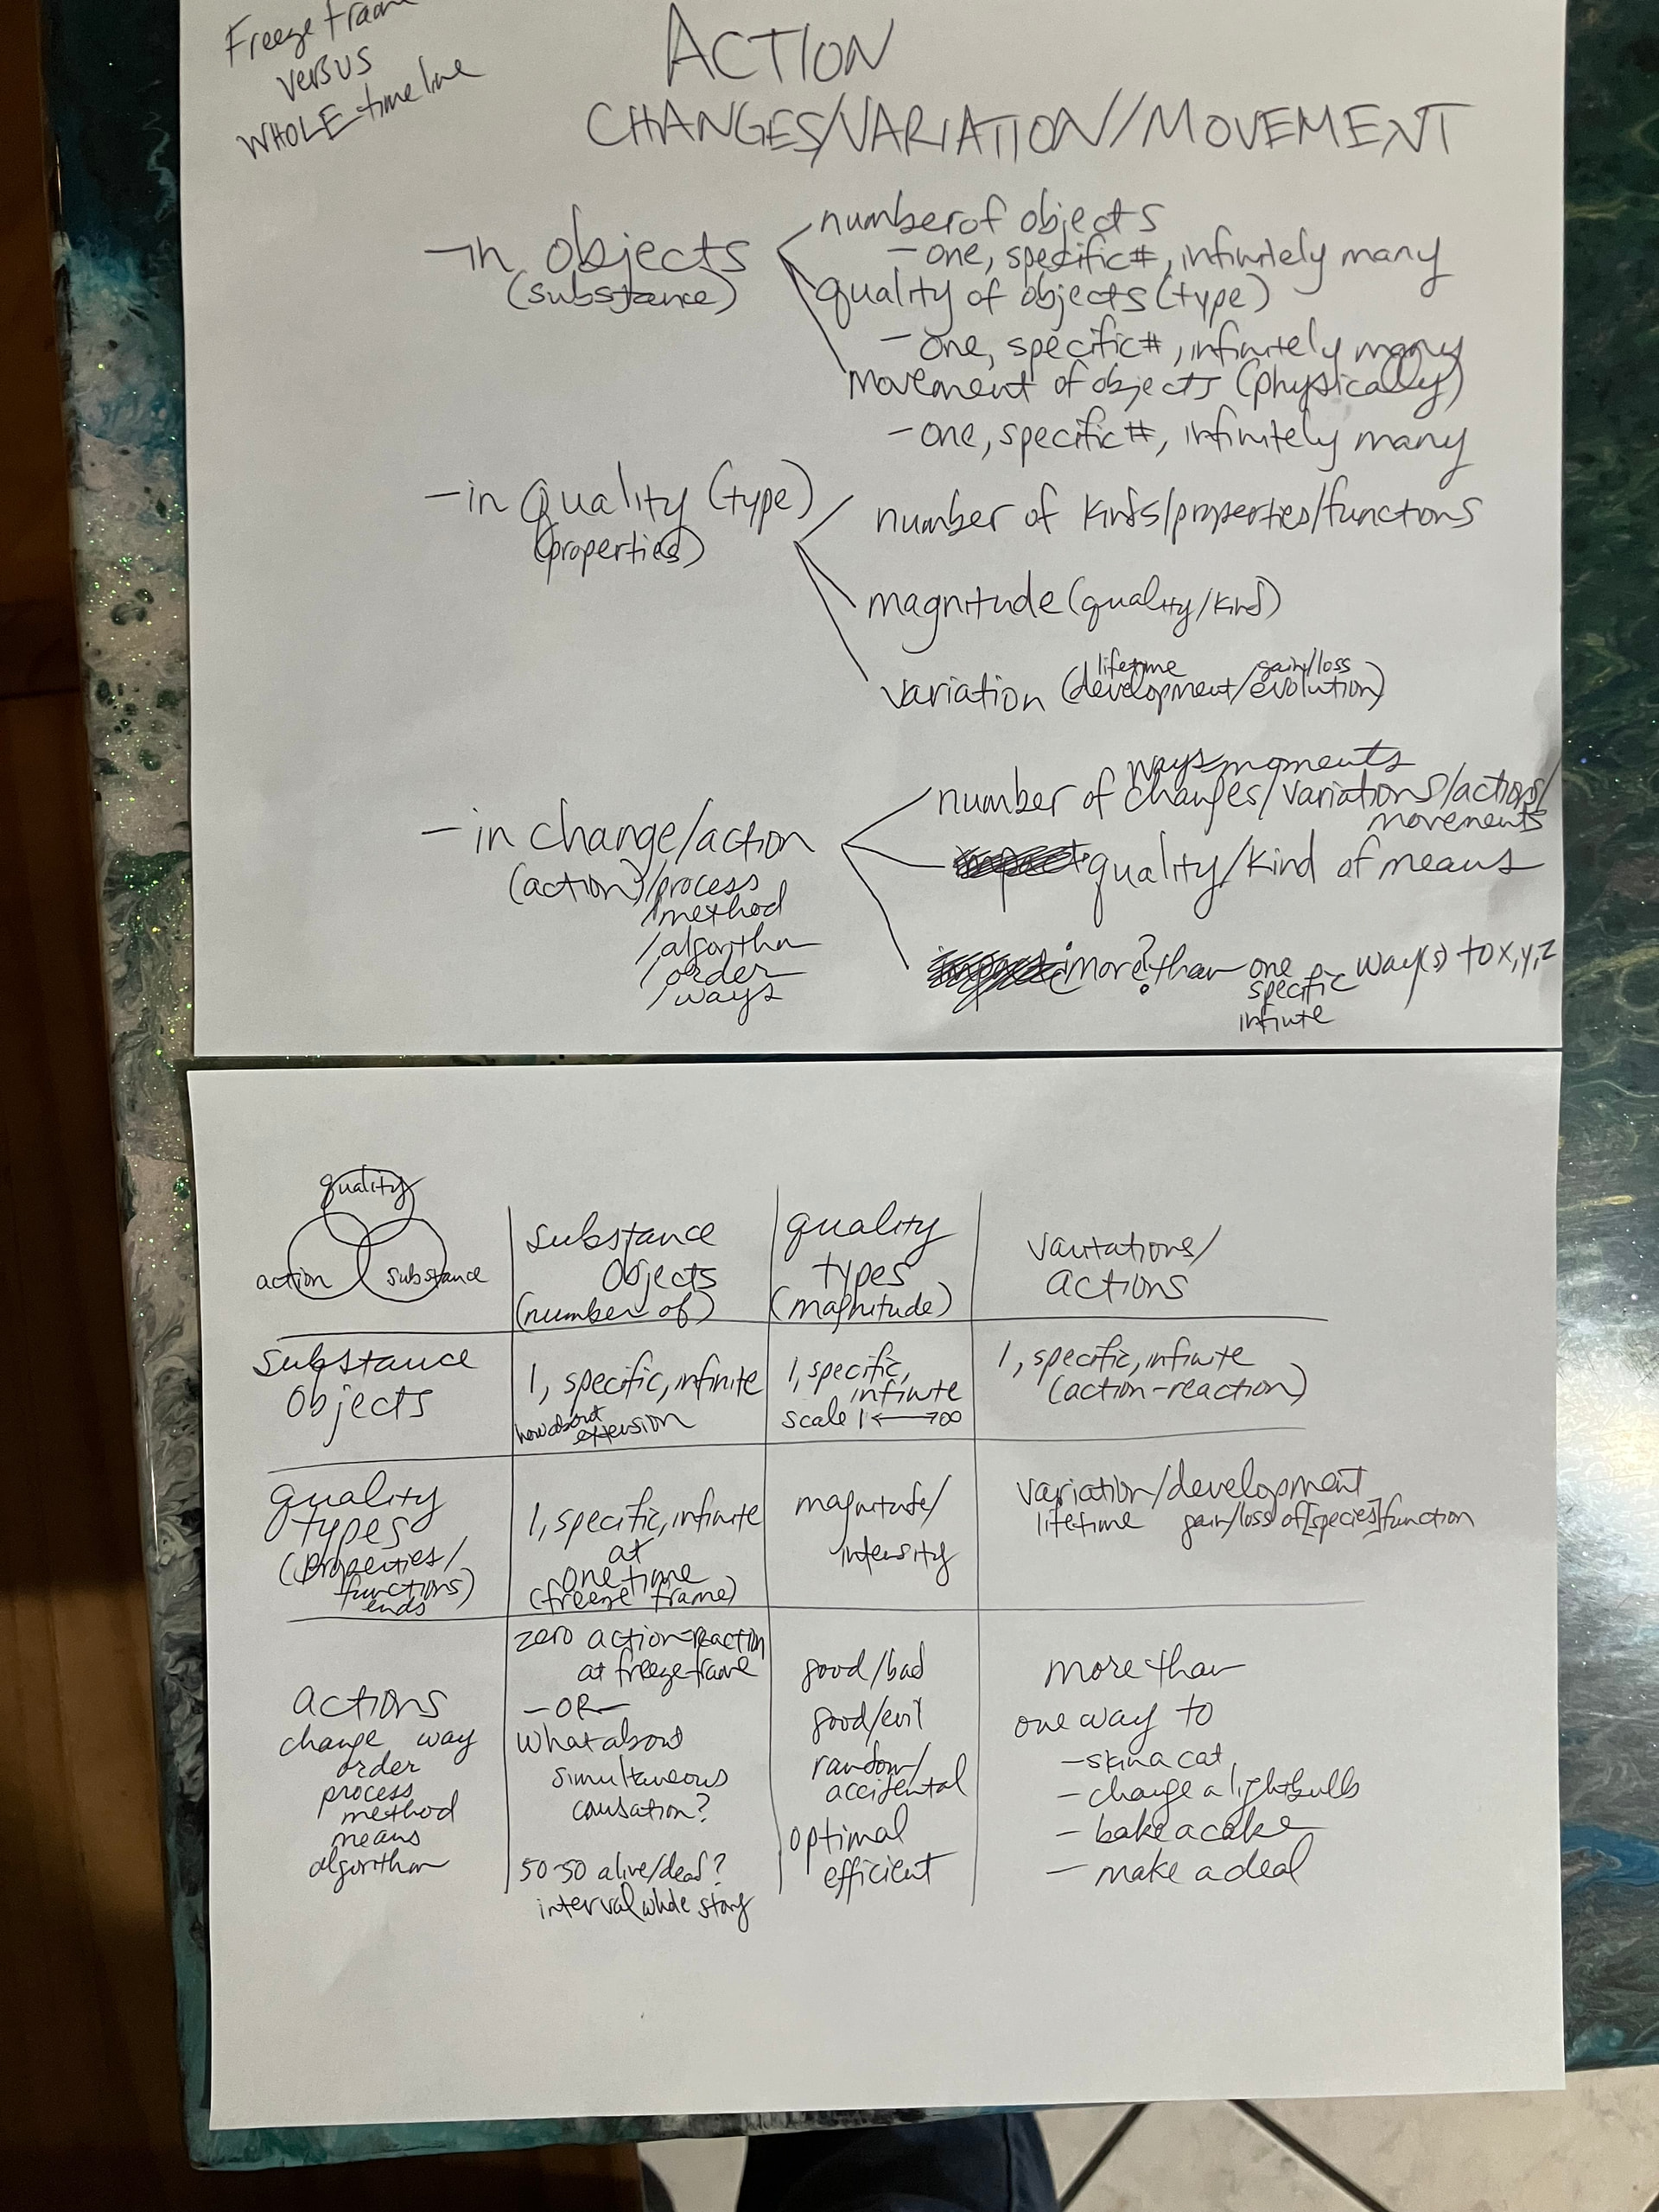 Freeze frame
versus
WHOLE-timeline
ACTION
CHANGES/VARIATION/MOVEMENT
- in objects
(substance)
number of objects
- one, specific #, infinitely many
quality of objects (type)
- one, specific #, infinitely many
movement of objects (physically)
- one, specific #, infinitely many
- in Quality (type)
(properties)
number of kinds/properties/functions
magnitude (quality/kind)
lifetime gain/loss
variation (development/evolution)
- in change/action
(action)/process
/method
/algorithm
/order
/ways
ways moments
number of changes/variations/actions/
movements
quality/kind of means
more? than one way(s) to x, y, z
specific
infinite
quality
action substance
substance
objects
(number of)
quality
types
(magnitude)
variations/
actions
substance
objects
1, specific, infinite
how about
extension
1, specific,
infinite
scale 1 ⟷ ∞
1, specific, infinite
(action-reaction)
quality
types
(properties/
functions)
ends
1, specific, infinite
at
one time
(freeze frame)
magnitude/
intensity
variation/development
lifetime gain/loss of [species] function
actions
change way
order
process
method
means
algorithm
zero action-reaction
at freeze-frame
- OR -
what about
simultaneous
causation?
50-50 alive/dead?
interval whole story
good/bad
good/evil
random/
accidental
optimal
efficient
more than
one way to
- skin a cat
- change a lightbulb
- bake a cake
- make a deal